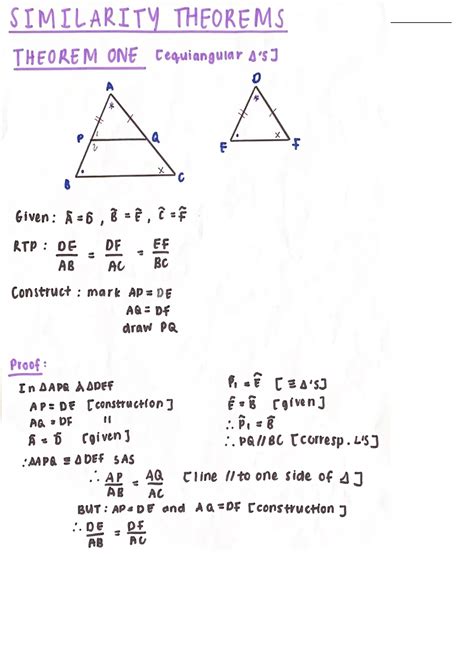 SIMILARITY THEOREMS
THEOREM ONE [equiangular Δ's]
A
D
P 1 Q
2
E F
B C
Given: Â = D̂, B̂ = Ê, Ĉ = F̂
RTP: DE/AB = DF/AC = EF/BC
Construct: mark AP = DE
AQ = DF
draw PQ
Proof:
In ΔAPQ & ΔDEF
AP = DE [construction]
AQ = DF "
Â = D̂ [given]
∴ ΔAPQ ≡ ΔDEF SAS
P̂₁ = Ê [≡ Δ's]
Ê = B̂ [given]
∴ P̂₁ = B̂
∴ PQ // BC [corresp. L's]
∴ AP/AB = AQ/AC [line // to one side of Δ]
BUT: AP = DE and AQ = DF [construction]
∴ DE/AB = DF/AC